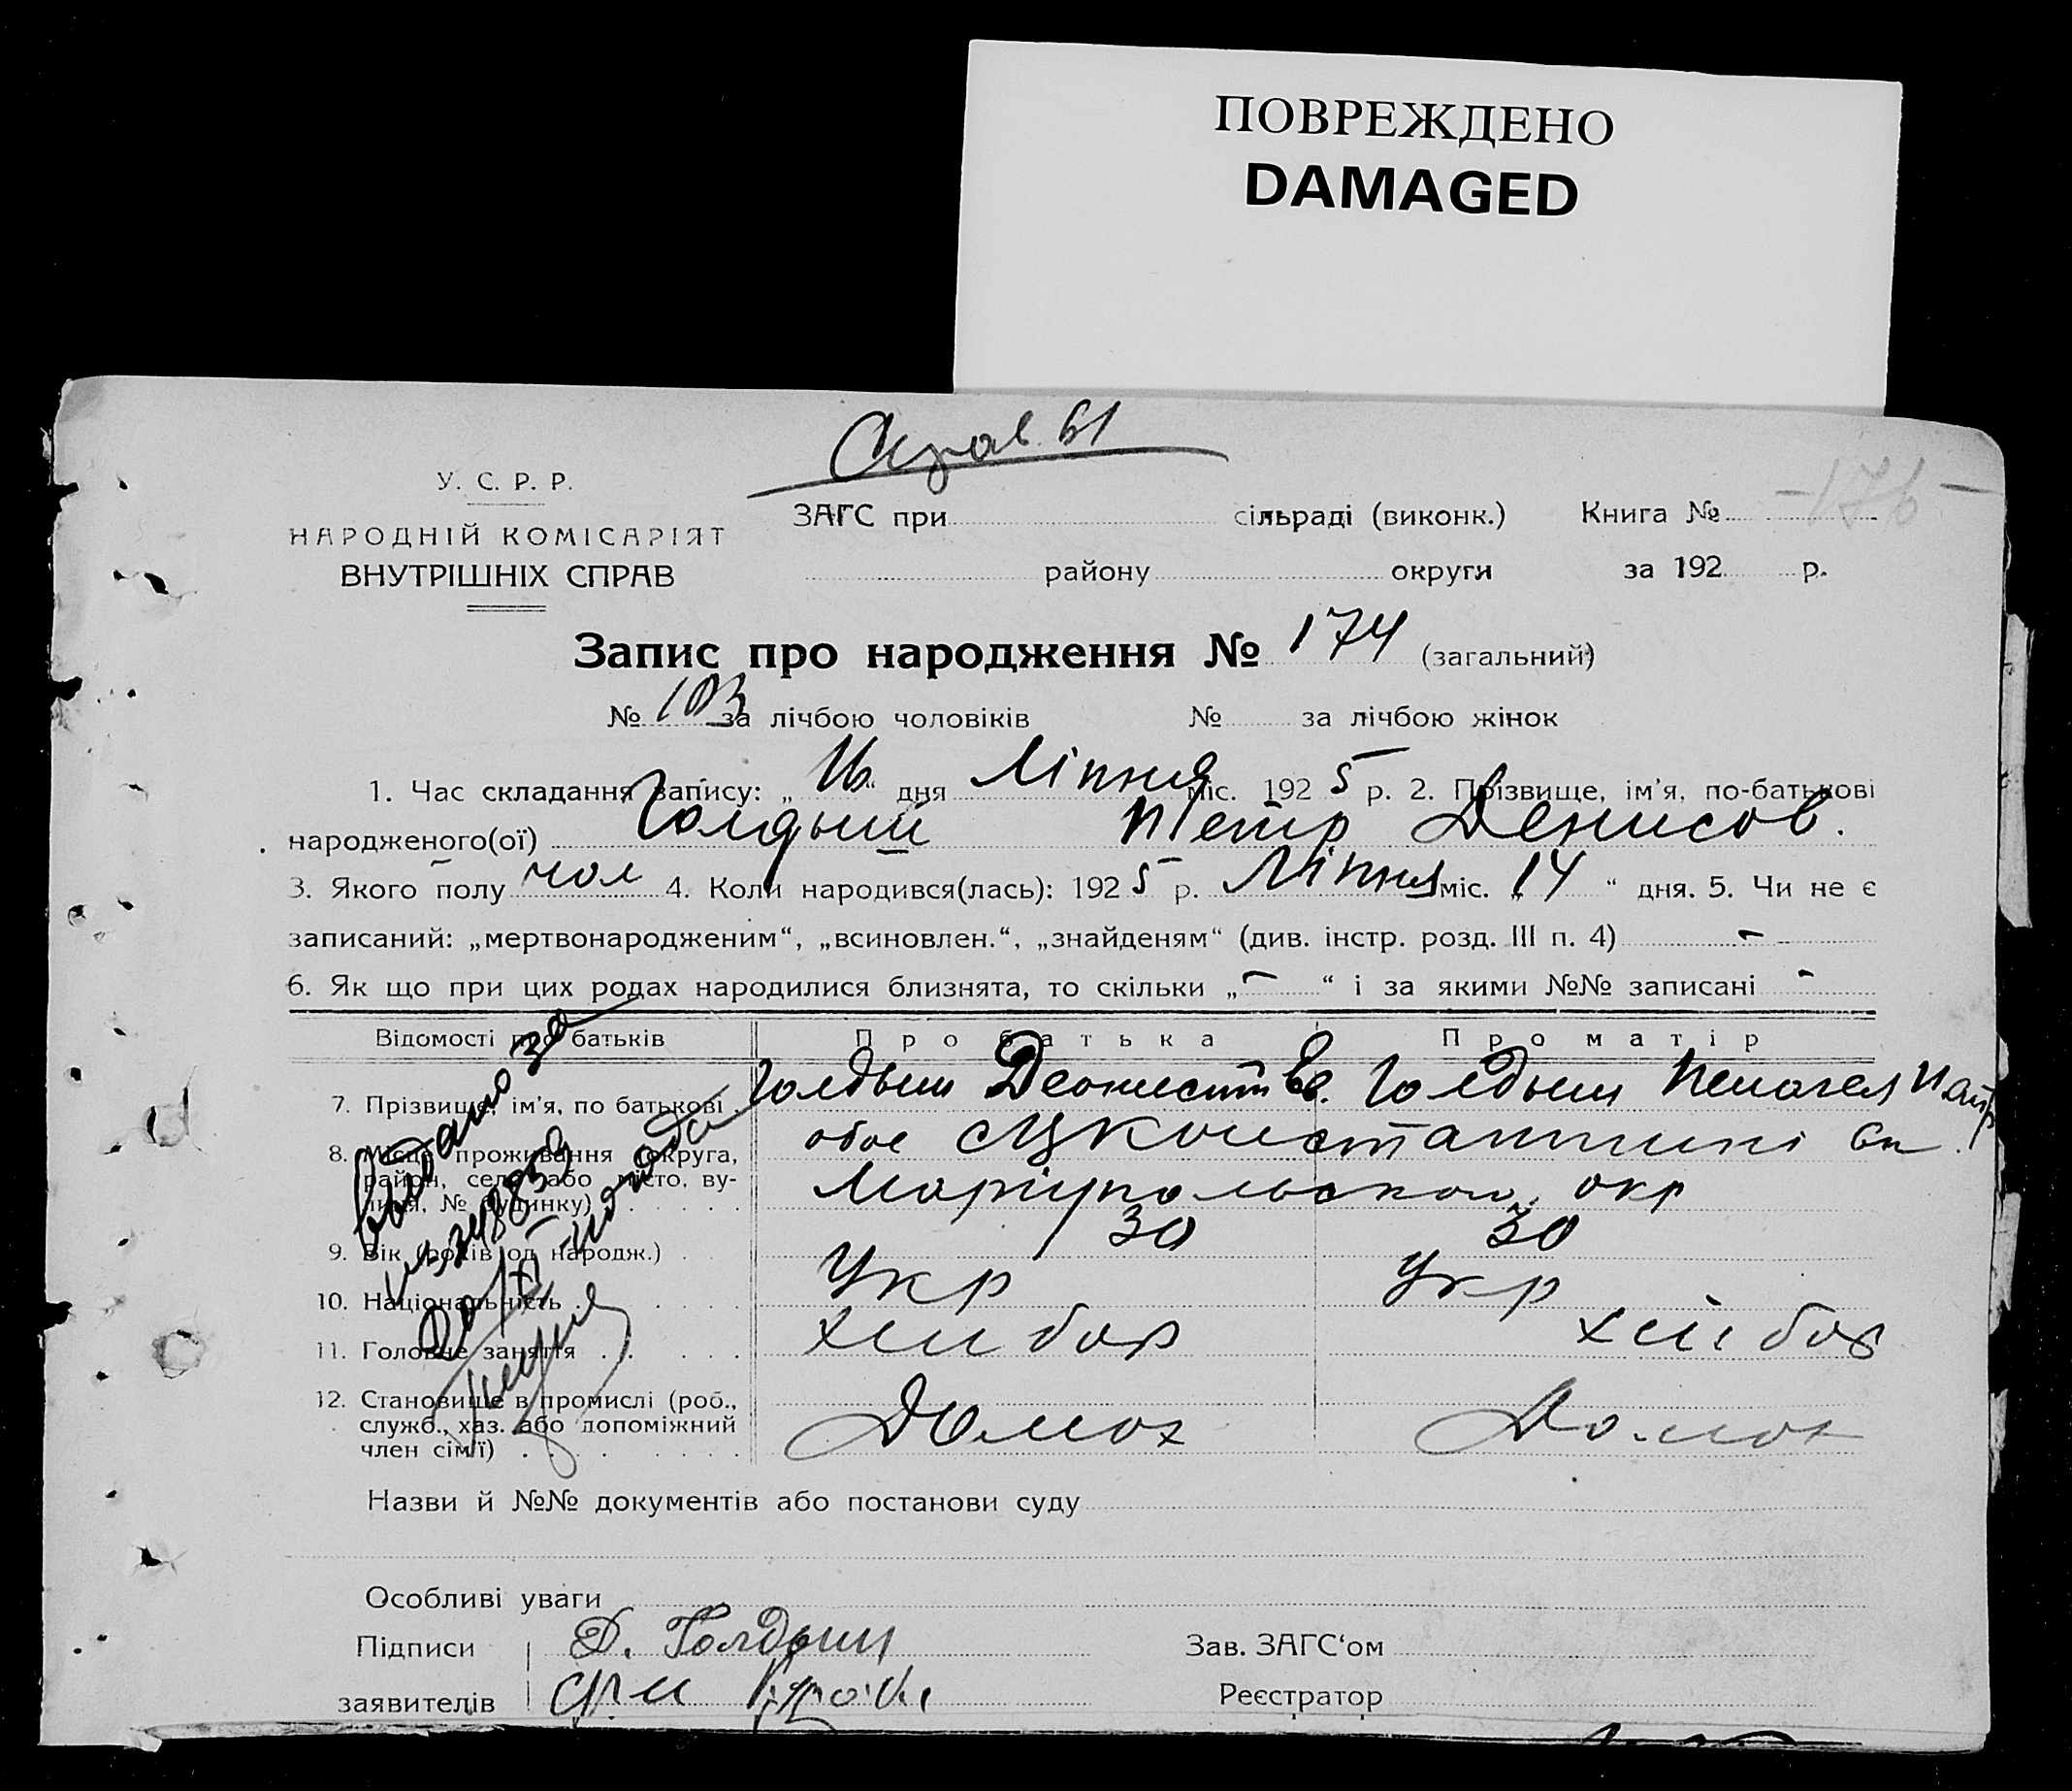 ПОВРЕЖДЕНО
DAMAGED
У. С. Р. Р.
НАРОДНІЙ КОМІСАРІЯТ
ВНУТРІШНІХ СПРАВ
ЗАГС при сільраді (виконк.) Книга № -176-
району округи за 192 р.
Запис про народження № 174 (загальний)
№ 103 за лічбою чоловіків № за лічбою жінок
1. Час складання запису: „16“ дня Ліпня міс. 1925 р. 2. Прізвище, ім'я, по-батькові
народженого(ої) Голдыш Петр Денисов.
3. Якого полу чол 4. Коли народився(лась): 1925 р. Ліпня міс. „14“ дня. 5. Чи не є
записаний: „мертвонародженим“, „всиновлен.“, „знайденям“ (див. інстр. розд. III п. 4) -
6. Як що при цих родах народилися близнята, то скільки „-“ і за якими №№ записані -
Відомості про батьків Про батька Про матір
7. Прізвище, ім'я, по батькові Голдыш Голдыш
8. Місце проживання (округа, обое
район, село або місто, ву- Маріупольськой окр
лиця, № будинку)
9. Вік (років од народж.) 30 30
10. Національність Укр Укр
11. Головне заняття хлібор хлібор
12. Становище в промислі (роб.,
служб., хаз. або допоміжний Домох Домох
член сім'ї)
Выдано за
Назви й №№ документів або постанови суду
Особливі уваги
Підписи Д. Голдыш Зав. ЗАГС'ом
заявителів Реєстратор